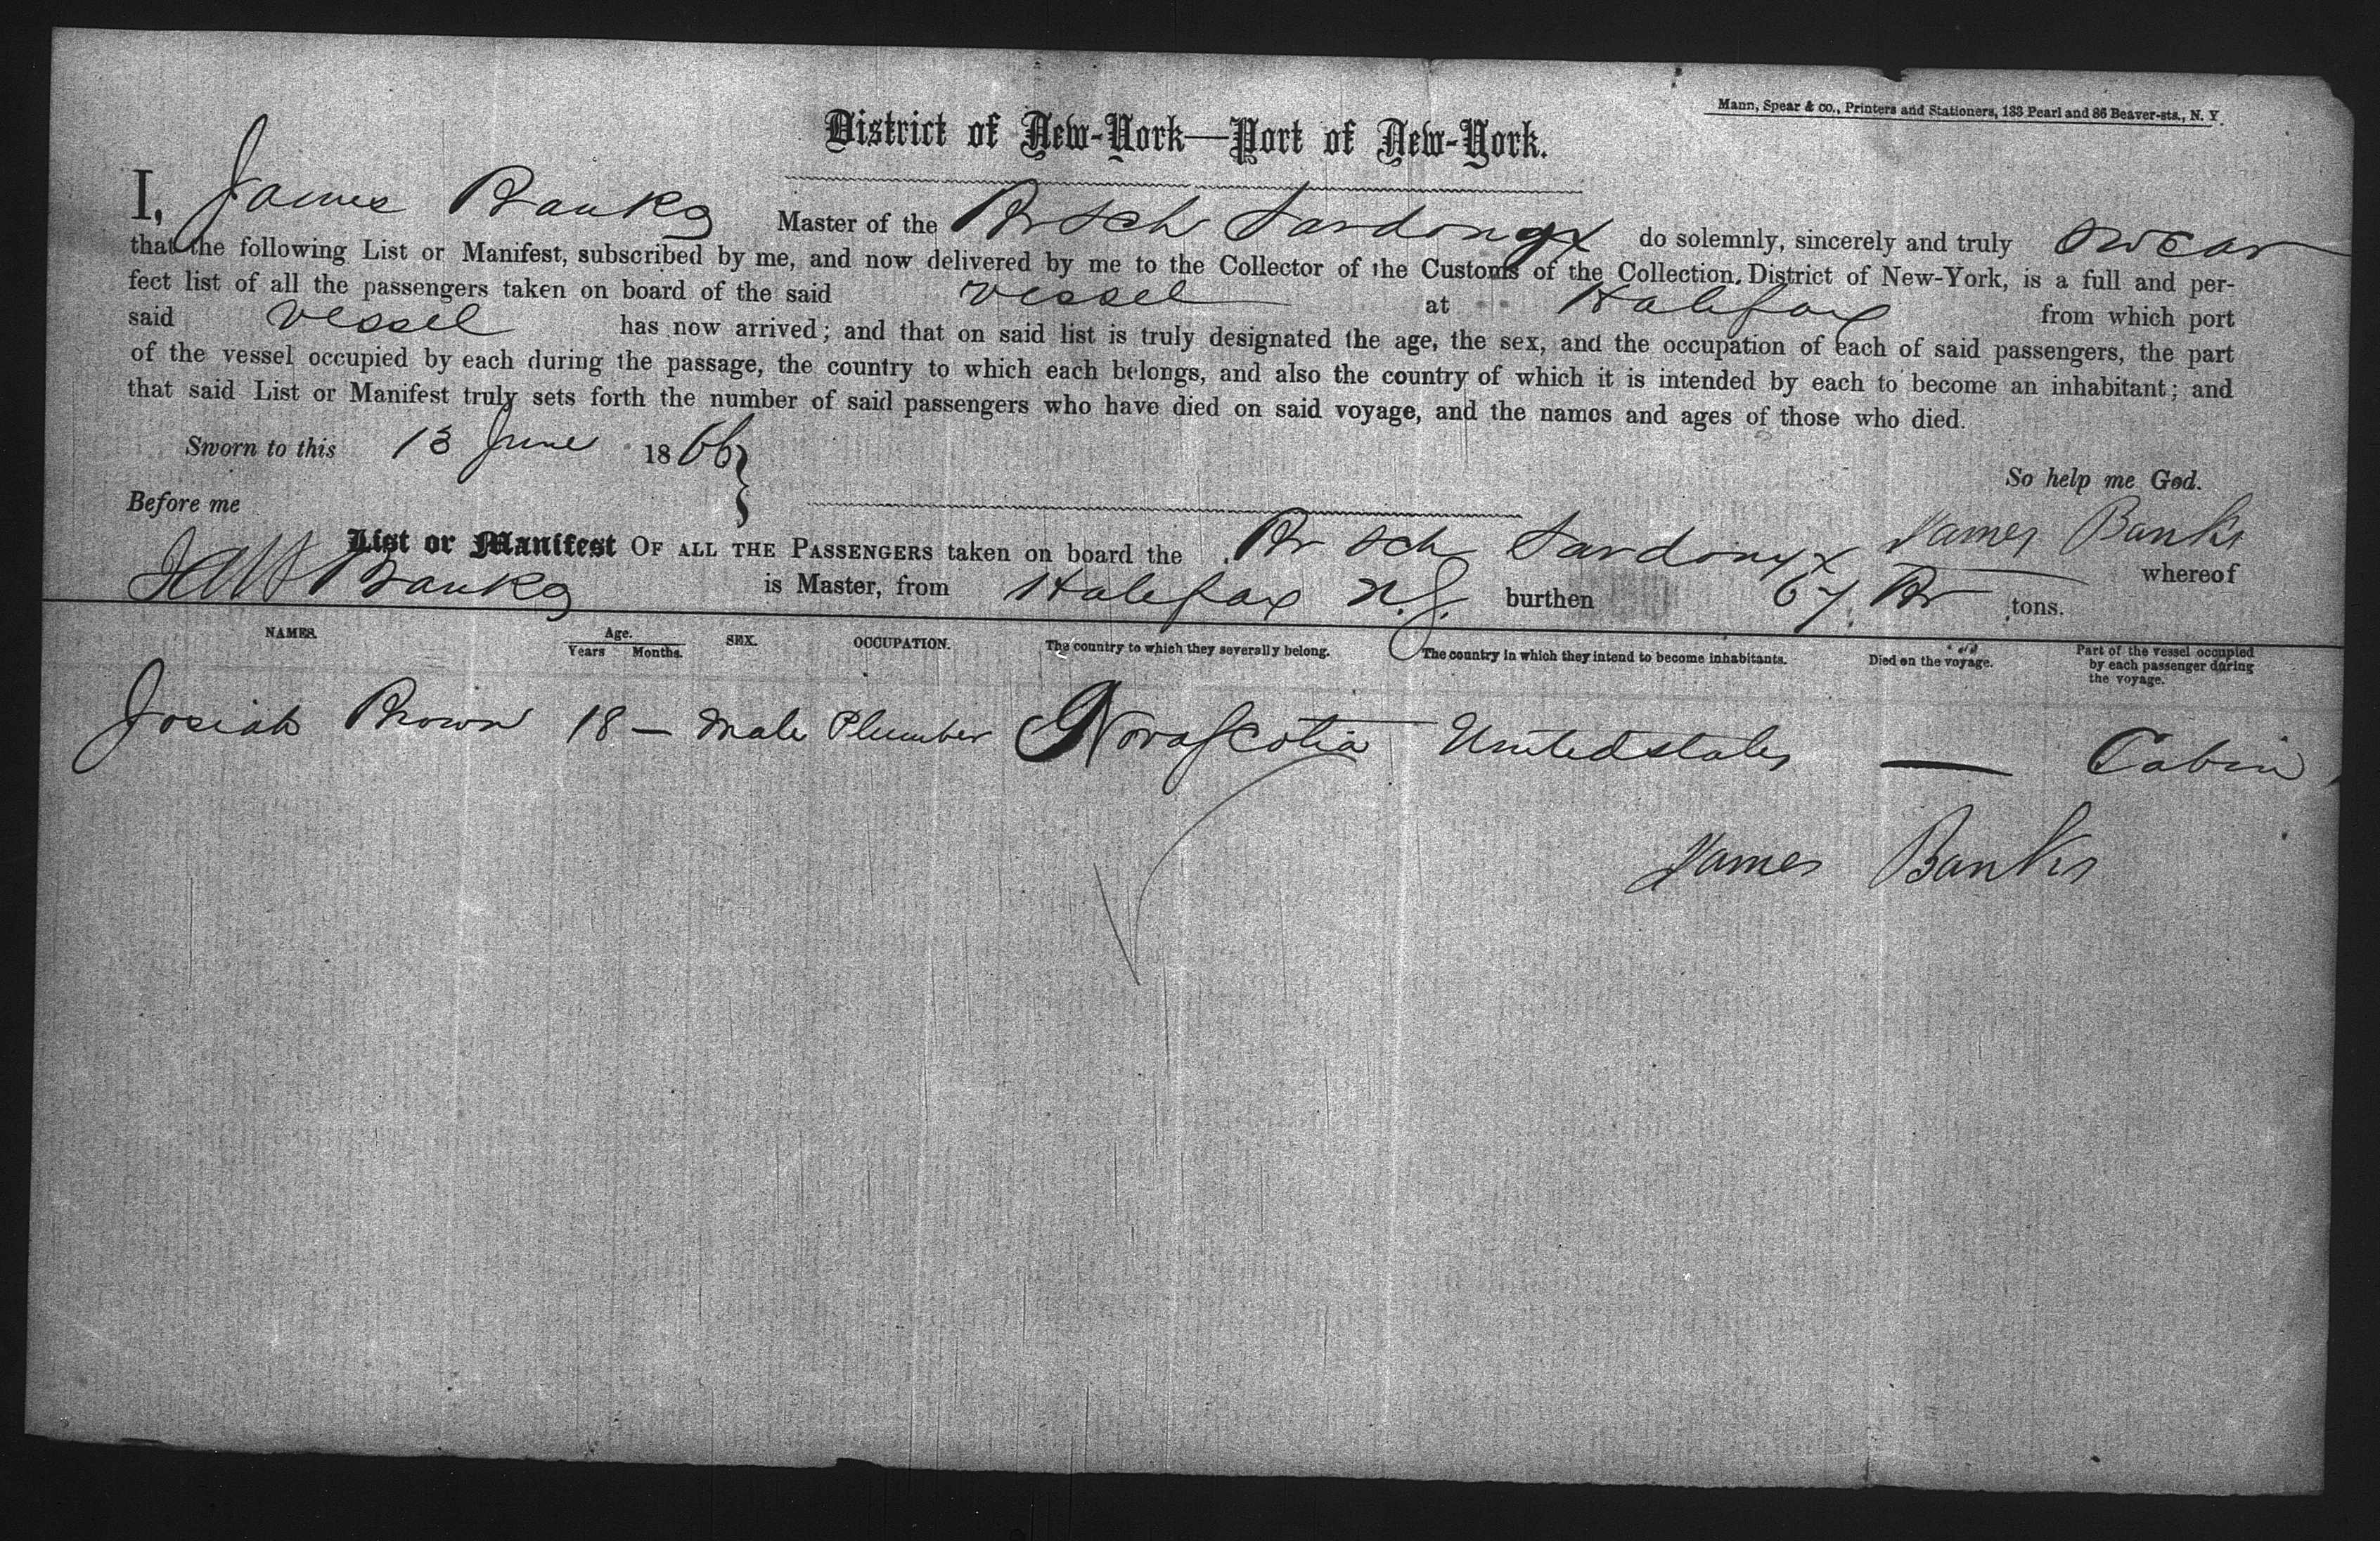 Mann, Spear & co., Printers and Stationers, 133 Pearl and 86 Beaver-sts., N. Y.
District of New-York—Port of New-York.
I, James Banks Master of the Br Sch Sardonyx do solemnly, sincerely and truly swear
that the following List or Manifest, subscribed by me, and now delivered by me to the Collector of the Customs of the Collection District of New-York, is a full and per-
fect list of all the passengers taken on board of the said vessel at Halifax from which port
said vessel has now arrived; and that on said list is truly designated the age, the sex, and the occupation of each of said passengers, the part
of the vessel occupied by each during the passage, the country to which each belongs, and also the country of which it is intended by each to become an inhabitant; and
that said List or Manifest truly sets forth the number of said passengers who have died on said voyage, and the names and ages of those who died.
Sworn to this 13 June 1866
So help me God.
Before me
James Banks
List or Manifest OF ALL THE PASSENGERS taken on board the Br Sch Sardonyx whereof
Banks is Master, from Halifax N.S. burthen 67 Br tons.
NAMES. Age. Years Months. SEX. OCCUPATION. The country to which they severally belong. The country in which they intend to become inhabitants. Died on the voyage. Part of the vessel occupied by each passenger during the voyage.
Josiah Brown 18 — Male Plumber Nova Scotia United states — Cabin
James Banks